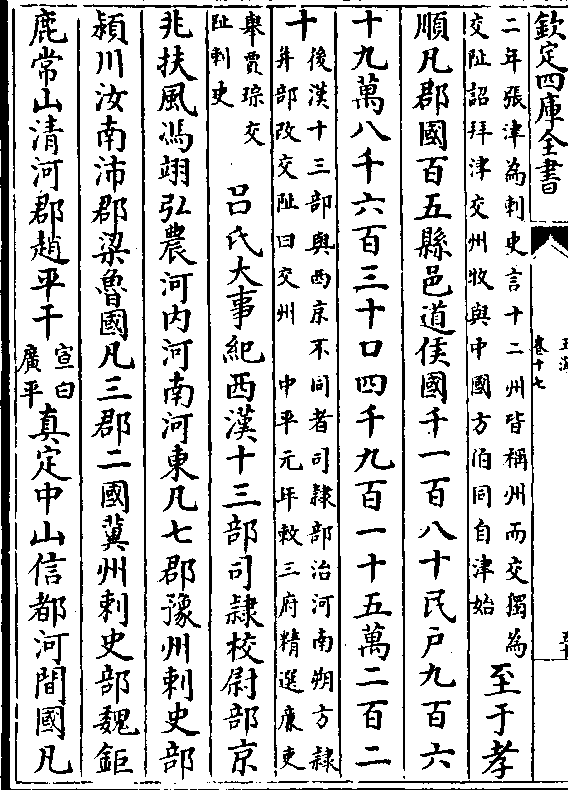 欽定四庫全書
卷十七
二年張津為刺史言十二州皆稱州而交獨為
交阯詔拜津交州牧與中國方伯同自津始
至于孝
順凡郡國百五縣邑道侯國千一百八十民戶九百六
十九萬八千六百三十口四千九百一十五萬二百二
十
後漢十三部與西京不同者司隸部治河南朔方隸
并部改交阯曰交州 中平元年敕三府精選廉吏
舉賈琮交
阯刺史
呂氏大事紀西漢十三部司隸校尉部京
兆扶風馮翊弘農河內河南河東凡七郡豫州刺史部
潁川汝南沛郡梁魯國凡三郡二國冀州刺史部魏鉅
鹿常山清河郡趙平干
宣曰
廣平
真定中山信都河間國凡